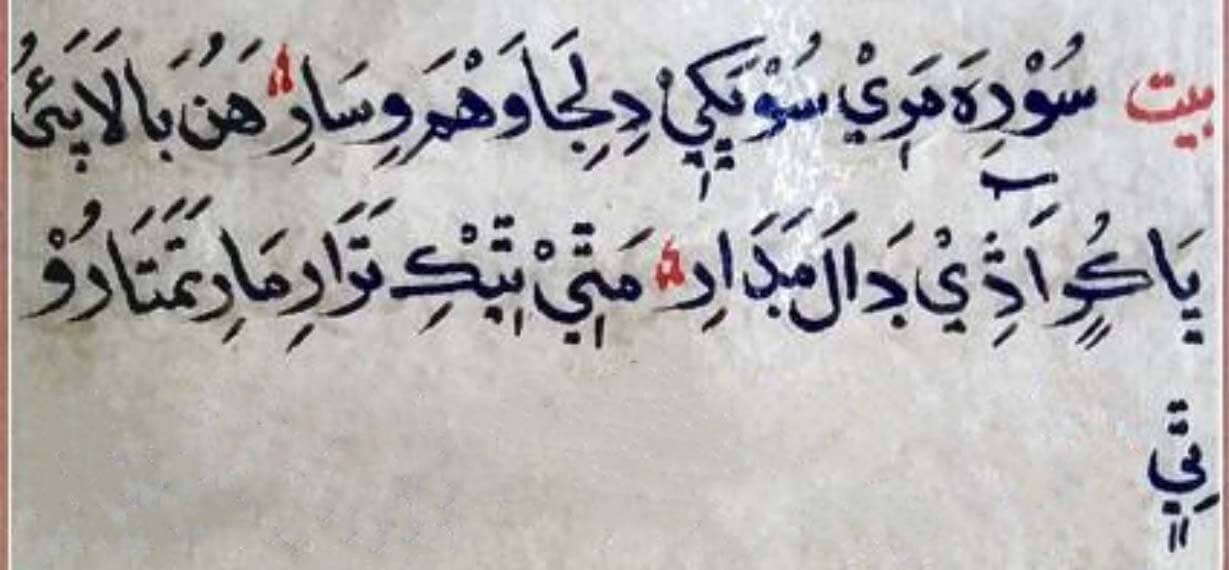 بيت سُوْرِهَ مَرِيْ سُوْبَکِيْ دِلِجَا وَهْمَ وِسَارِ هَنُ بَالَا
اَڐِيْ دَالَ مَدَارِ مَتِيْ تِيْکِ تَرَارِ مَارِ تَمَتَارُوْ
تِي